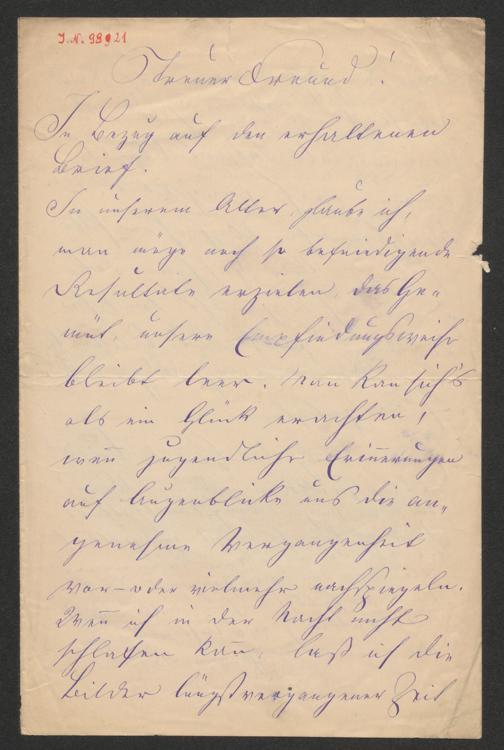 I.N. 98921
Treuer Freund!
In Bezug auf den erhaltenen
Brief.
In unserem Alter, glaube ich,
man möge noch so befriedigende
Resultate erzielen, das Ge=
müt, unsere Empfindungsweise
bleibt leer. Man kan sich's
als ein Glück erachten,
wen̄ jugendliche Erin̄erungen
auf Augenblicke uns die an=
genehme Vergangenheit
vor – oder vielmehr nachspiegeln.
Wen̄ ich in der Nacht nicht
schlafen kan̄, laß ich die
Bilder längstvergangener Zeit